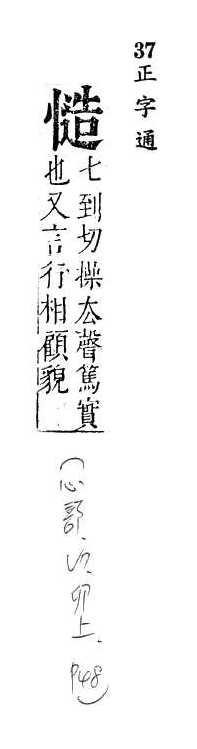 37正字通
慥
七到切操厺聲篤實
也又言行相顧貌
(心部、卯上、P48)